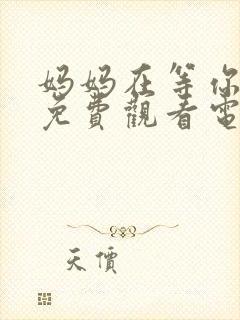 妈妈在等你
免費觀看電
天價